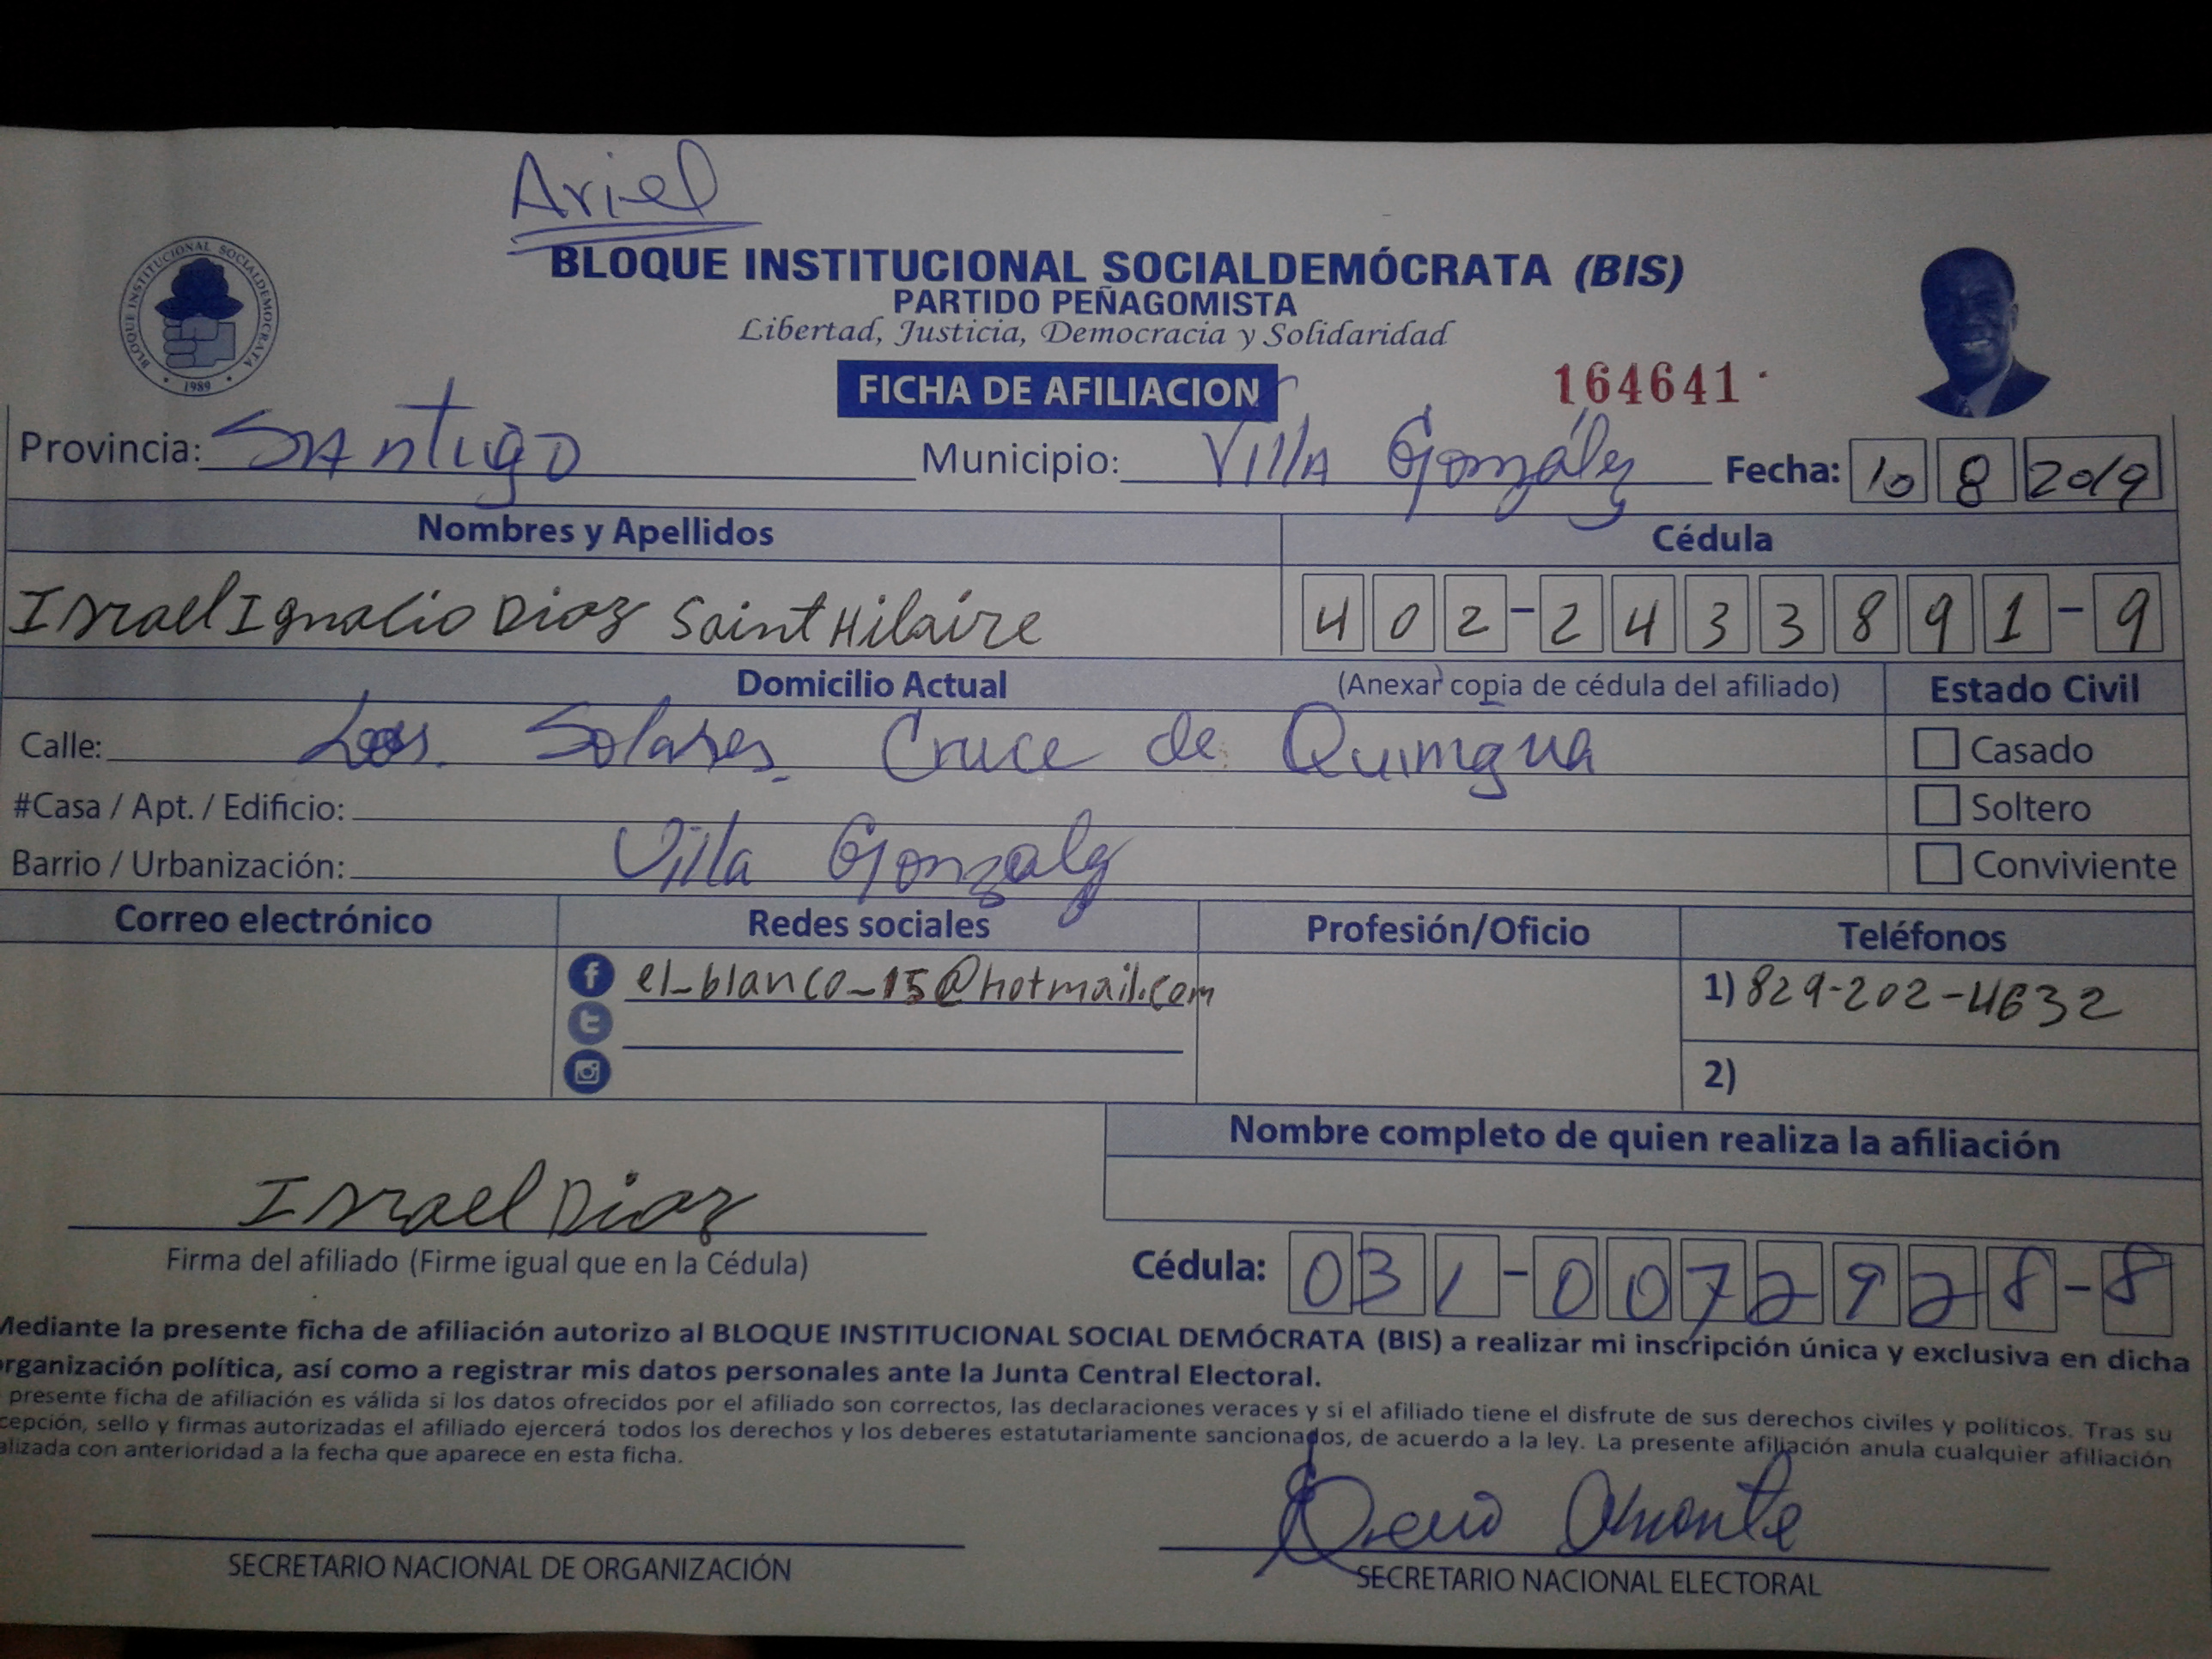 Ariel
BLOQUE INSTITUCIONAL SOCIALDEMOCRATA
1989
BLOQUE INSTITUCIONAL SOCIALDEMÓCRATA (BIS)
PARTIDO PEÑAGOMISTA
Libertad, Justicia, Democracia y Solidaridad
FICHA DE AFILIACION
164641
Provincia: SAntigo Municipio: Villa González Fecha: 10 8 2019
Nombres y Apellidos Cédula
Israel Ignacio Diaz Saint Hilaire 402-2433891-9
Domicilio Actual (Anexar copia de cédula del afiliado) Estado Civil
Calle: Los Solares Cruce de Quimgua Casado
#Casa / Apt. / Edificio: Soltero
Barrio / Urbanización: Villa Gonzalez Conviviente
Correo electrónico Redes sociales Profesión/Oficio Teléfonos
el_blanco_15@hotmail.com 1) 829-202-4632
2)
Nombre completo de quien realiza la afiliación
Israel Diaz
Firma del afiliado (Firme igual que en la Cédula) Cédula: 031-0072928-8
Mediante la presente ficha de afiliación autorizo al BLOQUE INSTITUCIONAL SOCIAL DEMÓCRATA (BIS) a realizar mi inscripción única y exclusiva en dicha
organización política, así como a registrar mis datos personales ante la Junta Central Electoral.
presente ficha de afiliación es válida si los datos ofrecidos por el afiliado son correctos, las declaraciones veraces y si el afiliado tiene el disfrute de sus derechos civiles y políticos. Tras su
cepción, sello y firmas autorizadas el afiliado ejercerá todos los derechos y los deberes estatutariamente sancionados, de acuerdo a la ley. La presente afiliación anula cualquier afiliación
alizada con anterioridad a la fecha que aparece en esta ficha.
SECRETARIO NACIONAL DE ORGANIZACIÓN SECRETARIO NACIONAL ELECTORAL